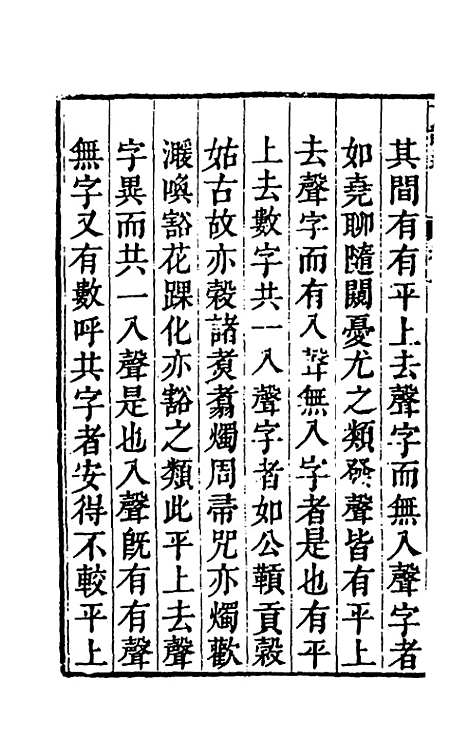 其間有有平上去聲字而無入聲字者
如堯聊隨闕憂尤之類發聲皆有平上
去聲字而有入聲無入字者是也有平
上去數字共一入聲字者如公顭貢穀
姑古故亦穀諸煑翥燭周帚咒亦燭歡
澣喚豁花踝化亦豁之類此平上去聲
字異而共一入聲是也入聲旣有有聲
無字又有數呼共字者安得不較平上